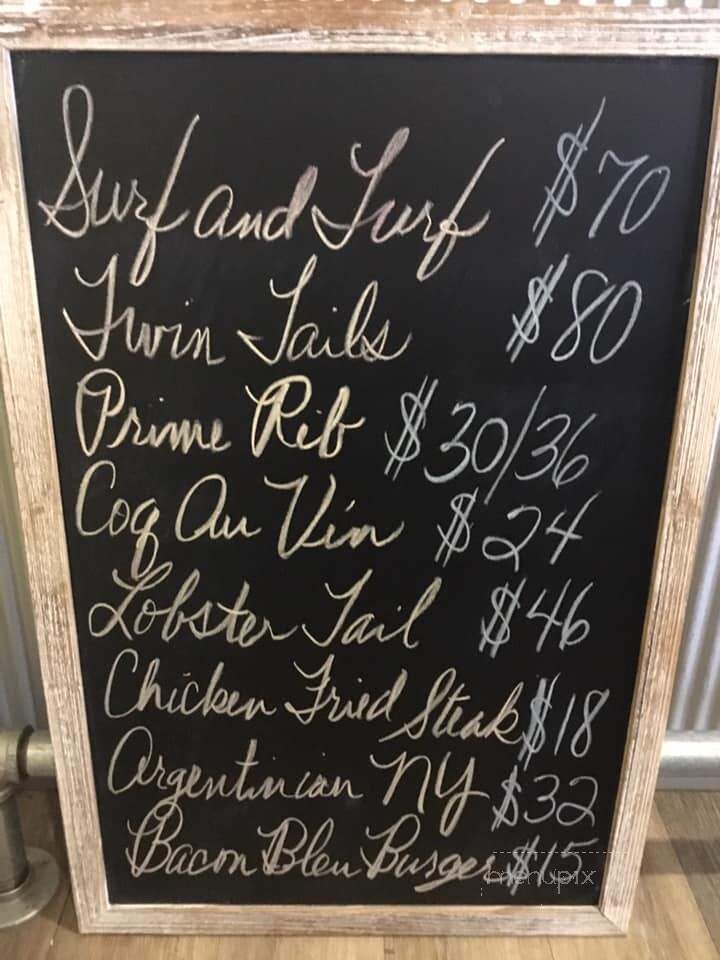 Surf and Turf $70
Twin Tails $80
Prime Rib $30/36
Coq Au Vin $24
Lobster Tail $46
Chicken Fried Steak $18
Argentinian NY $32
Bacon Bleu Burger $15
menupix